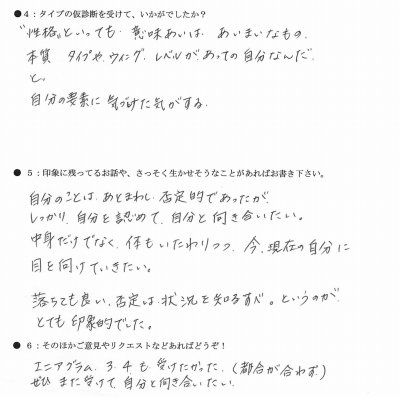 ●4：タイプの仮診断を受けて、いかがでしたか？
"性格"といっても 意味あいは、あいまいなもの。
本質 タイプや ウィング、レベルがあっての自分なんだ
と。
自分の要素に 気づけた気がする。
● 5：印象に残ってるお話や、さっそく生かせそうなことがあればお書き下さい。
自分のことは、あとまわし、否定的であったが、
しっかり、自分を認めて、自分と向き合いたい。
中身だけでなく、体もいたわりつつ、今、現在の自分に
目を向けていきたい。
落ちても良い、否定は、状況を知るすべ。というのが
とても 印象的でした。
● 6：そのほかご意見やリクエストなどあればどうぞ！
エニアグラム、3、4も 受けたかった。（都合が合わず）
ぜひ また受けて、自分と向き合いたい。